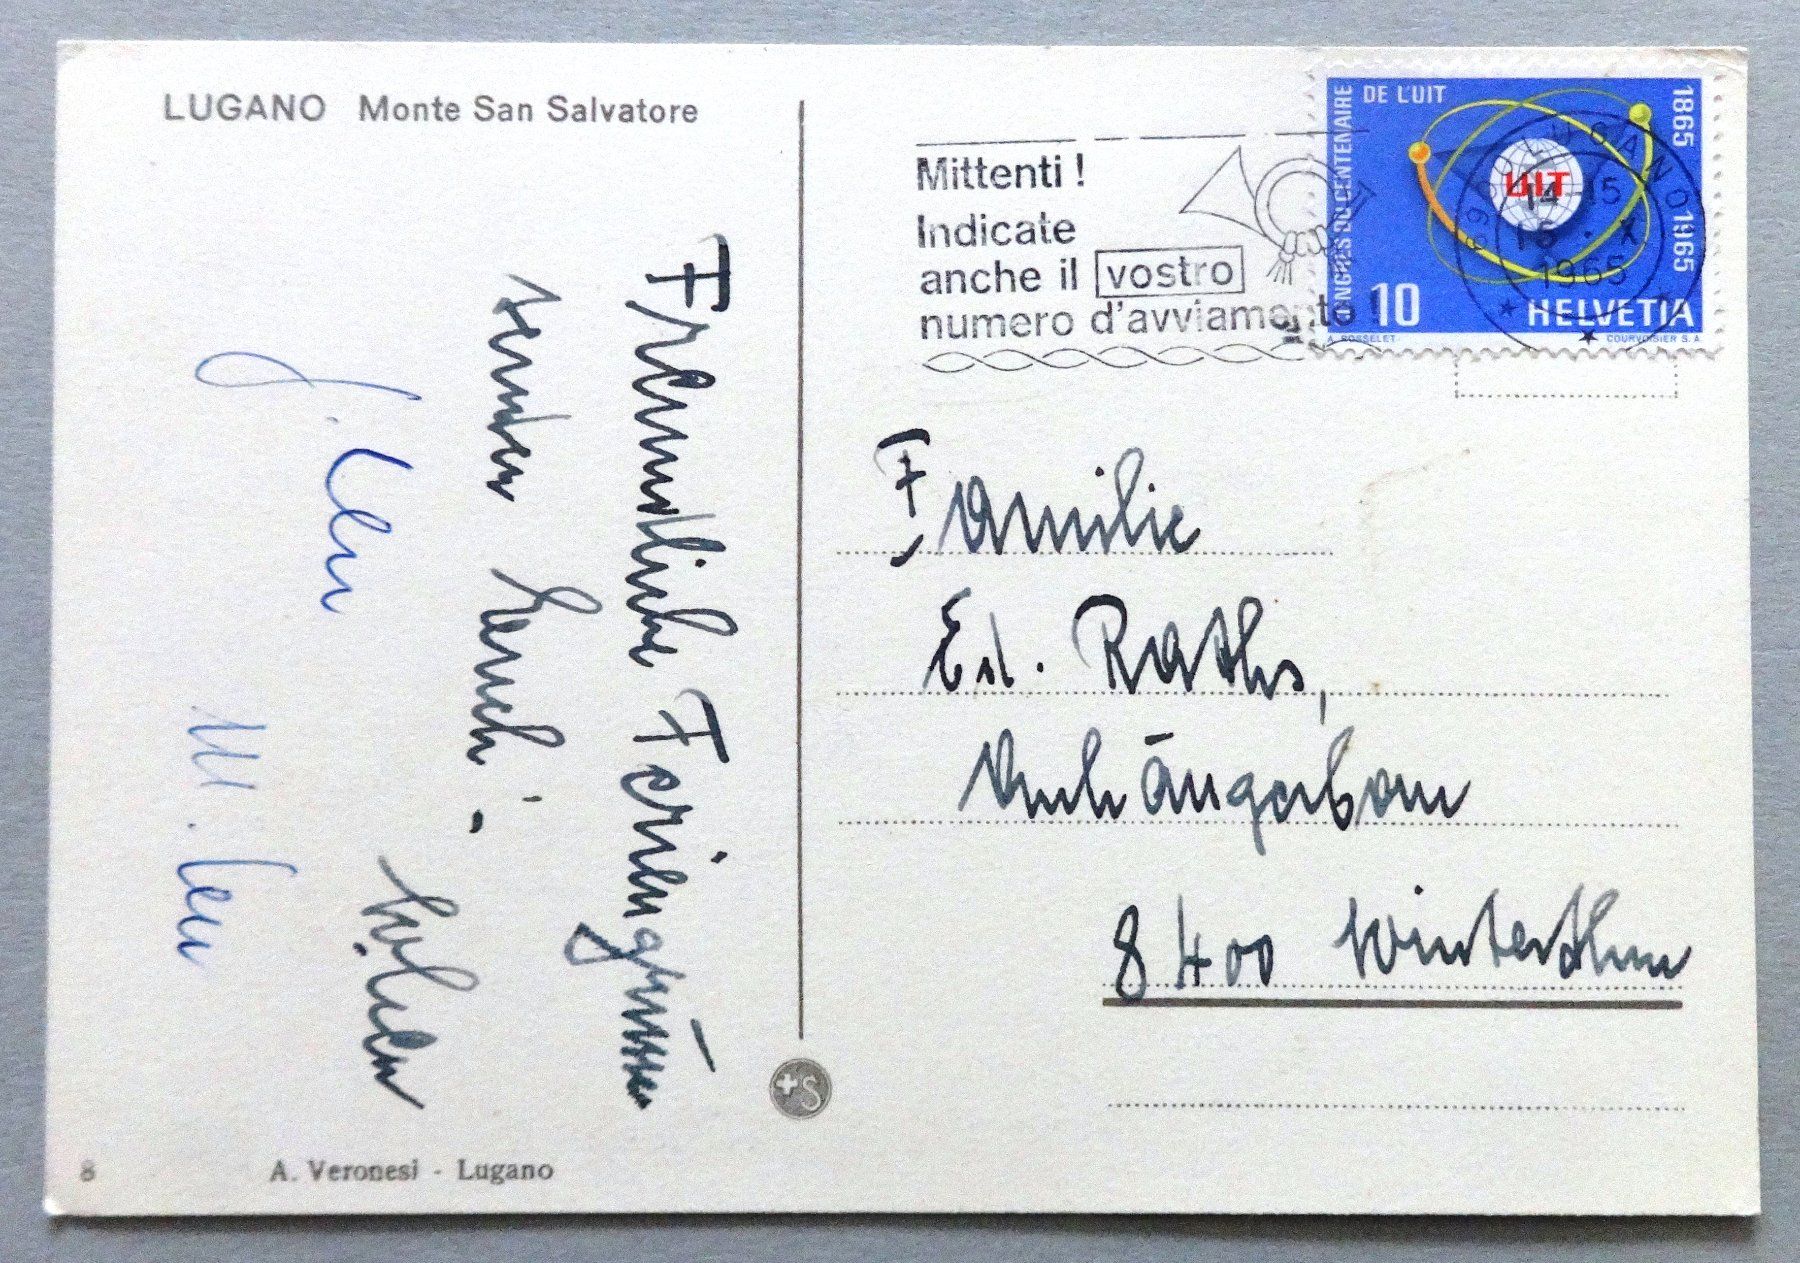 LUGANO Monte San Salvatore
Freundliche Feriengrüsse
senden Euch:
J. Leu
M. Leu
8
A. Veronesi - Lugano
+S
Mittenti !
Indicate
anche il vostro
numero d'avviamento !
6900 LUGANO
14-15
X
1965
CONGRÈS DU CENTENAIRE
DE L'UIT
1865
1965
UIT
10
HELVETIA
A. ROSSELET
COURVOISIER S.A.
Familie
Ed. Raths,
8400 Winterthur